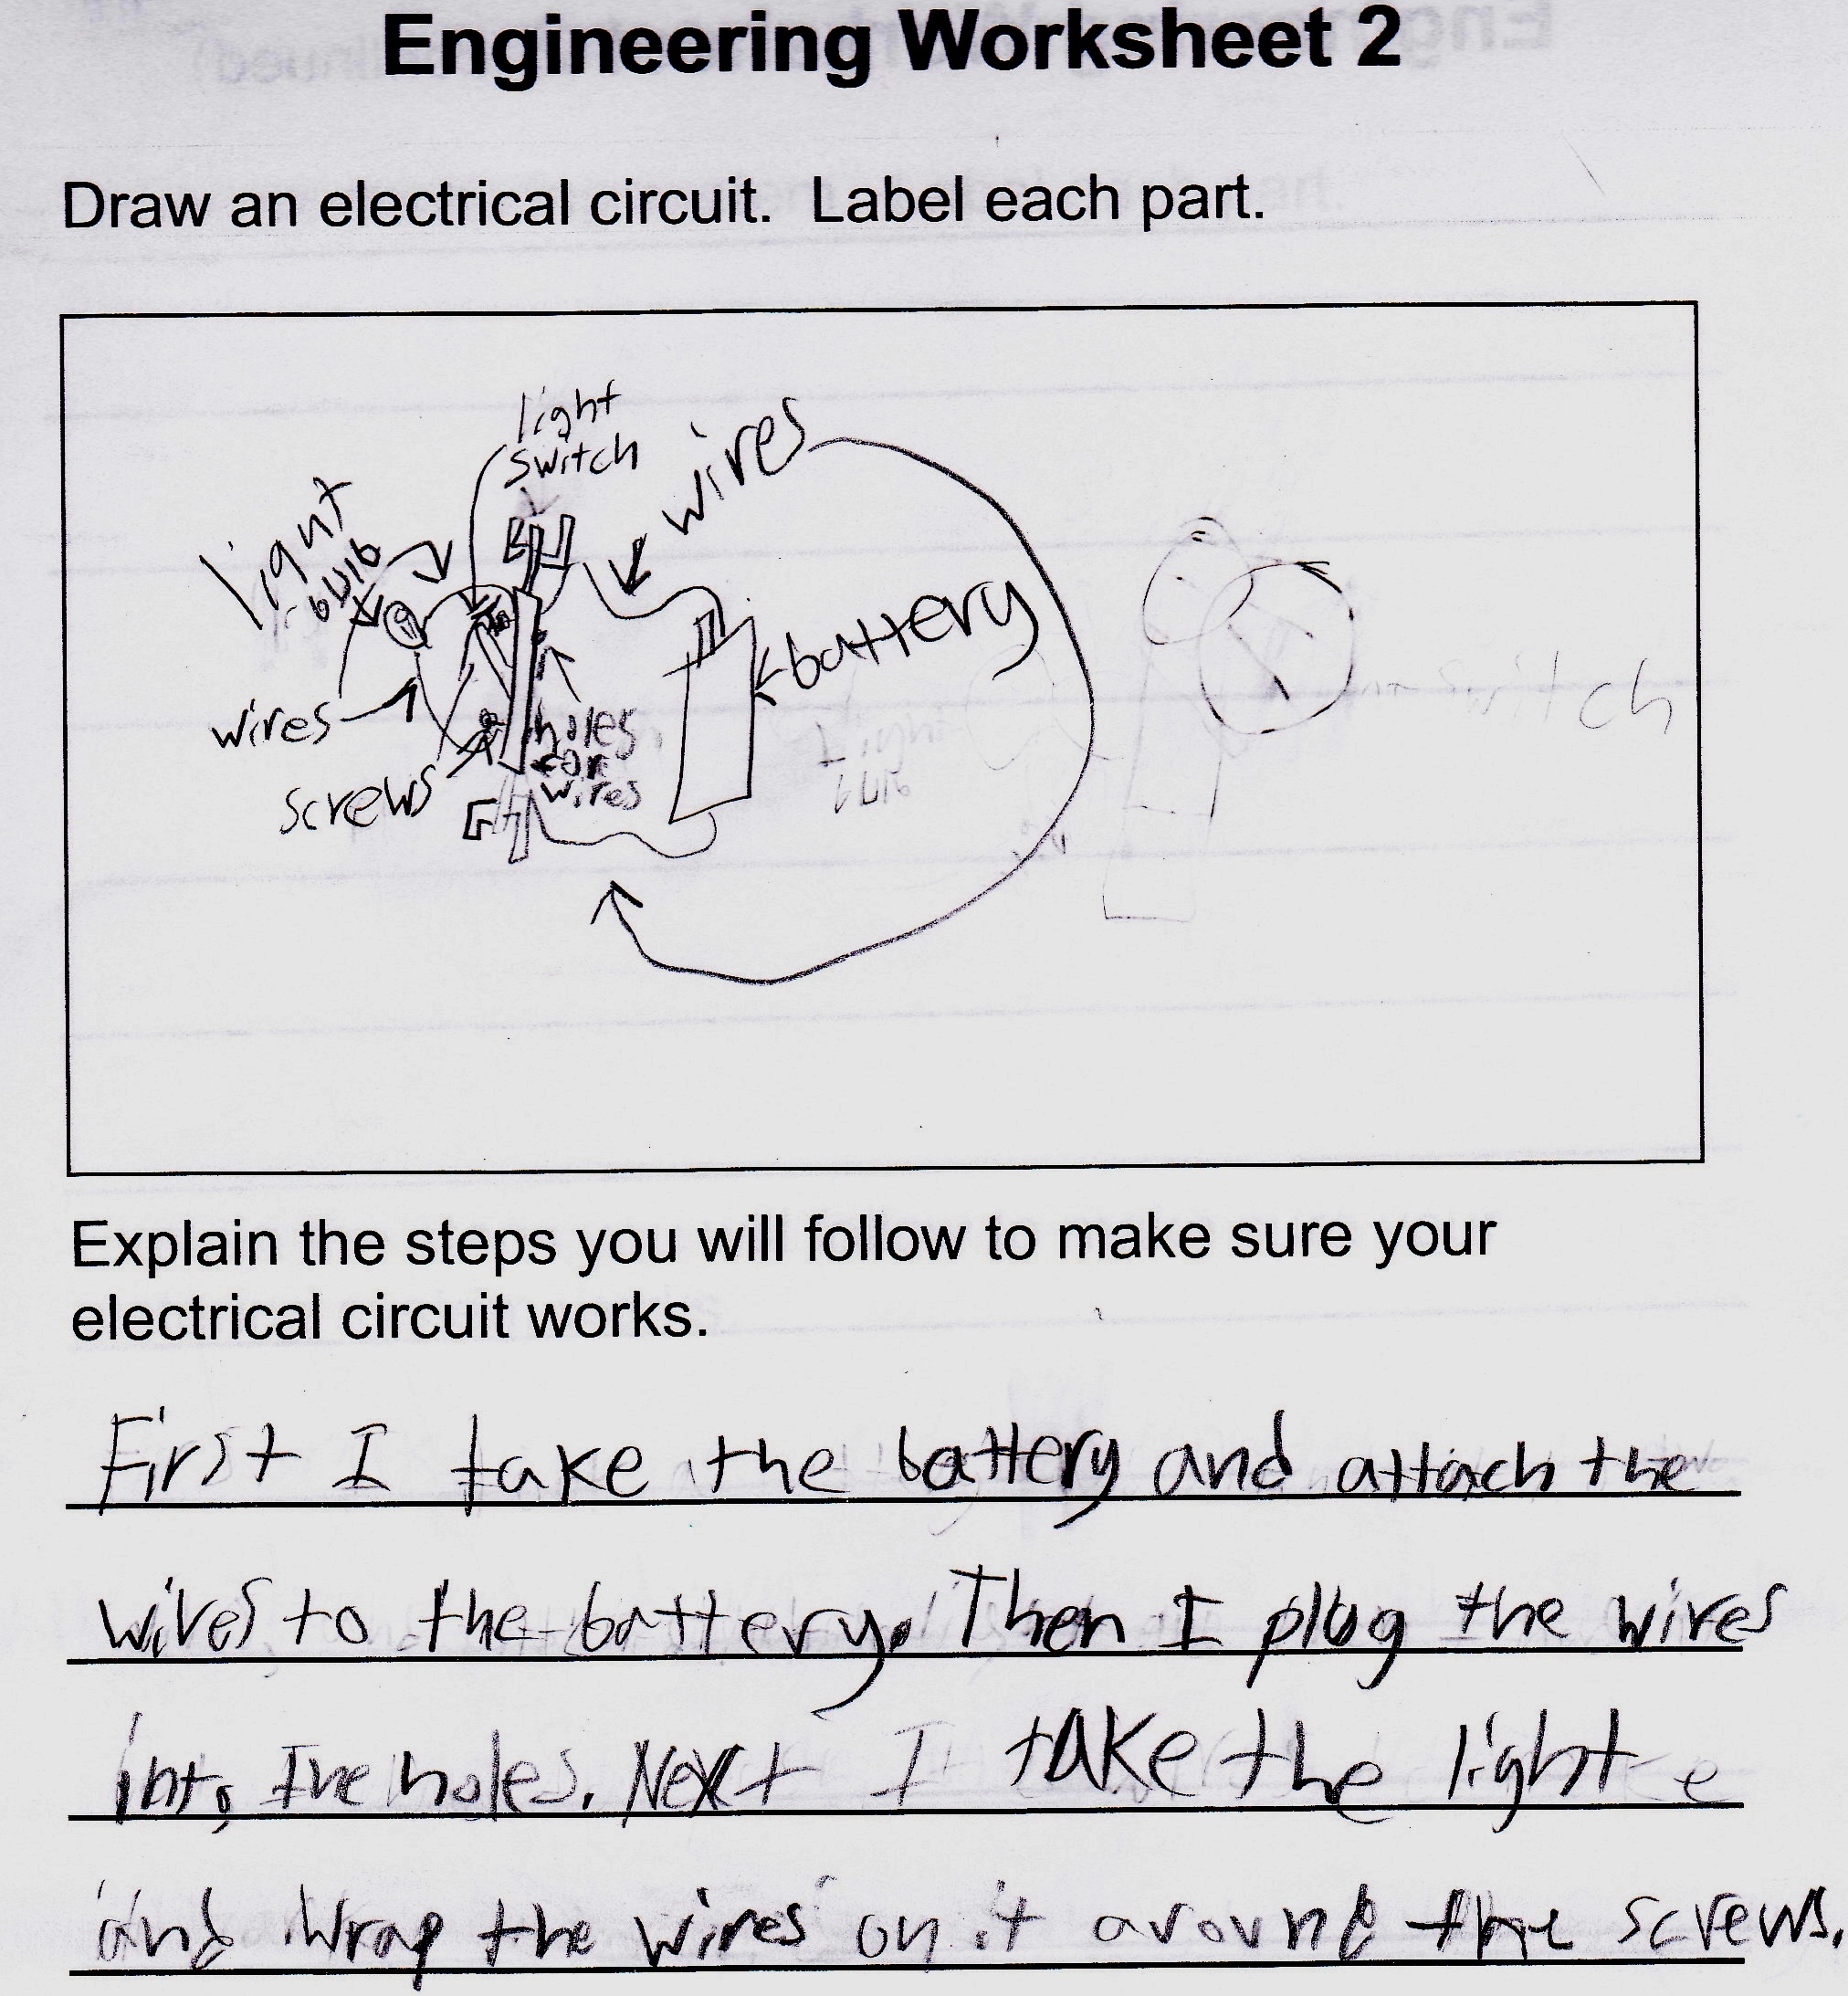 Engineering Worksheet 2
Draw an electrical circuit. Label each part.
light
switch
wires
light
bulb
battery
wires
holes
for
wires
screws
switch
light
Explain the steps you will follow to make sure your
electrical circuit works.
First I take the battery and attach the
wires to the battery. Then I plug the wires
into the holes. Next I take the light
and wrap the wires on it around the screws.